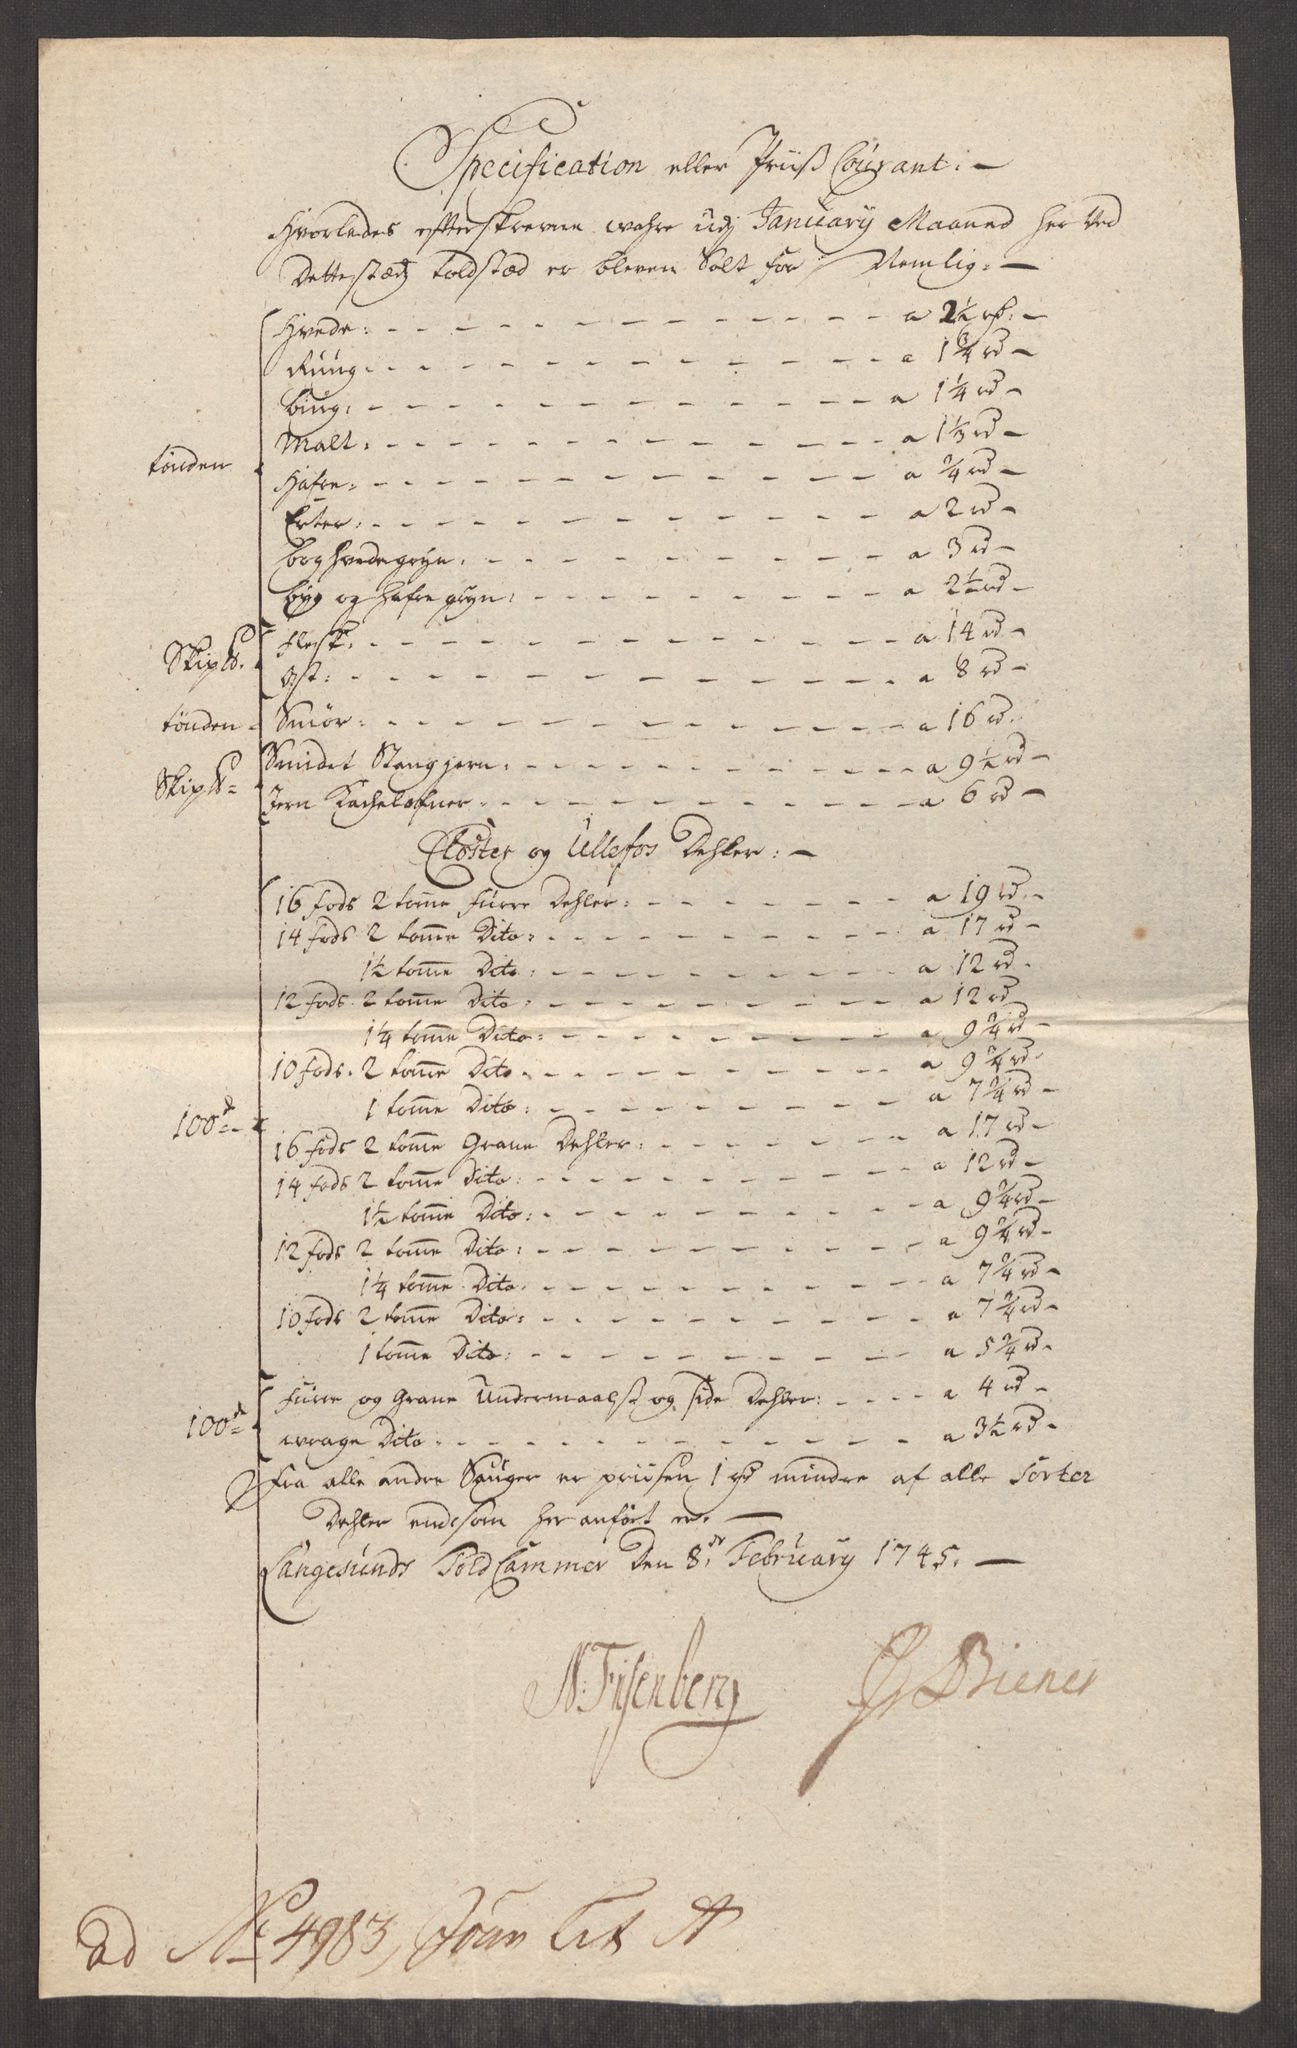 Specification eller Priiß Courant: —
Hvorledes efterskrevne wahre udj January Maaned her Ved
Dette stædz toldstæd er bleven Solt for / Nemlig: —
Hvede: a 2½ rd: —
Rüüg a 1¾ rd —
biüg: a 1¼ rd —
Malt: a 1⅓ rd —
tønden
Hafre: a ¾ rd —
Erter: a 2 rd —
boghvedegryn a 3 rd —
byg og hafre gryn: a 2½ rd —
Flesk: a 14 rd —
Skip℔.
Ost: a 8 rd —
tønden Smör: a 16 rd.
Smidet Stangjern: a 9½ rd —
Skip℔ =
Jern Kachelofner a 6 rd —
Closter og Ullefos Dehler: —
16 fods 2 tomme Fürre Dehler: a 19 rd. —
14 fods 2 tomme Dito: a 17 rd —
1½ tomme Dito: a 12 rd.
12 fods 2 tomme Dito: a 12 rd
1¼ tomme Dito: a 9¾ rd —
10 fods 2 tomme Dito a 9¾ rd.
1 tomme Dito: a 7¾ rd —
100de
16 fods 2 tomme Grane Dehler: a 17 rd —
14 fods 2 tomme Dito: a 12 rd —
1½ tomme Dito: a 9¾ rd —
12 fods 2 tomme Dito: a 9¾ rd —
1¼ tomme Dito a 7¾ rd —
10 fods 2 tomme Dito: a 7¾ rd —
1 tomme Dito: a 5¾ rd —
Fürre og Grane Undermaalß og side Dehler: a 4 rd —
100de =
wrage Dito a 3½ rd —
Fra alle andre Sauger er priisen 1 rd mindre af alle Sorter
Dehler end som her anført er. —
Langesunds Told Cammer Den 8de February 1745. —
N: Fisenberg Biener
ad No 4983, Lit A